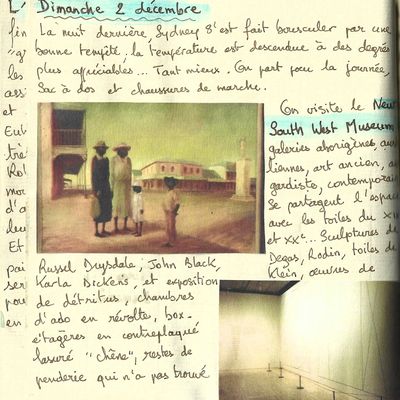 Dimanche 2 décembre
La nuit dernière, Sydney s'est fait bousculer par une
bonne tempête. la température est descendue à des degrés
plus appréciables... Tant mieux. On part pour la journée,
Sac à dos et chaussures de marche.
On visite le New
South West Museum
galeries aborigènes, aus
liennes, art ancien, a
gardiste, contemporain
Se partagent l'espace
avec les toiles du XIX
et XXe... Sculptures de
Degas, Rodin, toiles de
Klein, œuvres de
Russel Drysdale, John Black,
Karla Dickens, et exposition
de détritus, chambres
d'ado en révolte, box.
étagères en contreplaqué
lasuré "chêne", restes de
penderie qui n'a pas trouvé